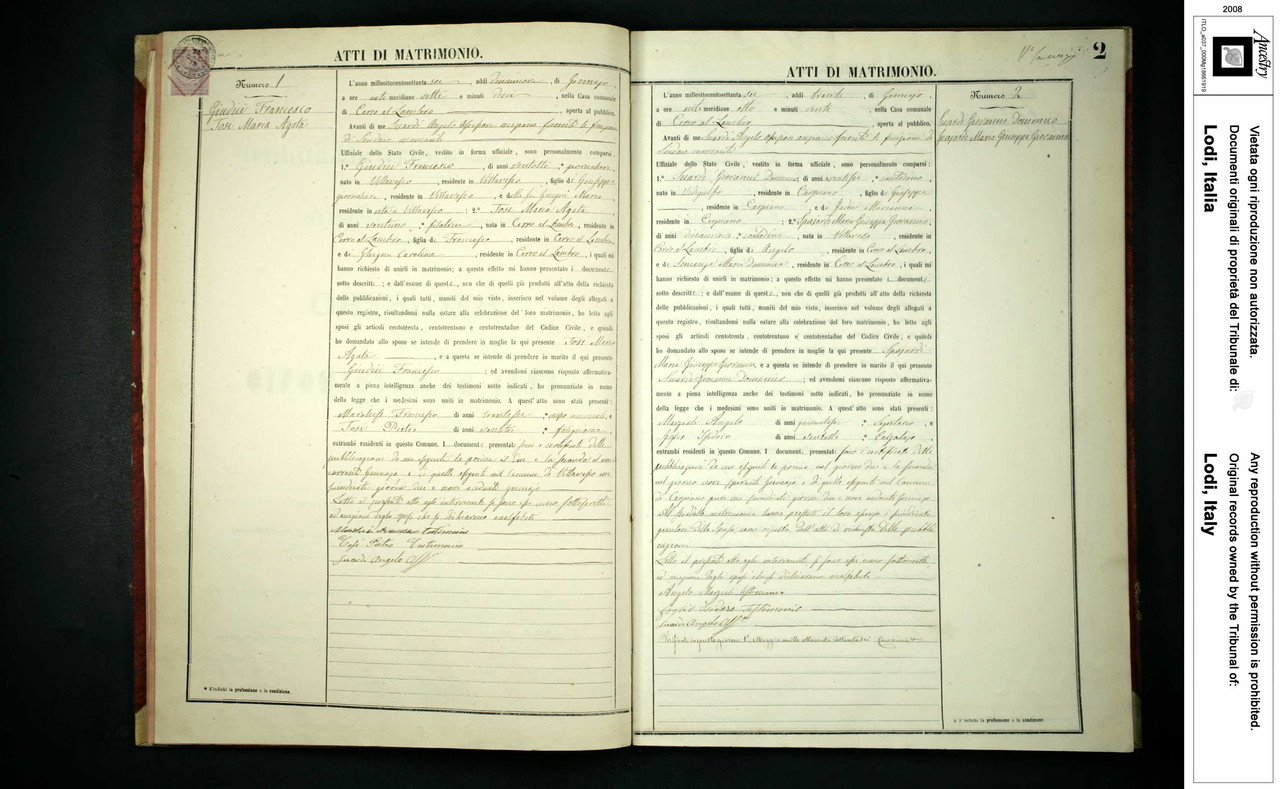 ATTI DI MATRIMONIO.
Numero 1
Giudici Francesco
Tosi Maria Agata
L'anno milleottocentosettanta sei, addì diecinove, di Gennajo,
a ore anti meridiane sette e minuti dieci, nella Casa comunale
di Cerro al Lambro, aperta al pubblico.
Avanti di me Suardi Angelo Assessore anziano facente le funzioni
di Sindaco
Uffiziale dello Stato Civile, vestito in forma uffiziale, sono personalmente comparsi:
1.° Giudici Francesco, di anni ventotto, * giornaliero,
nato in Villavesco, residente in Villavesco, figlio di Giuseppe
giornaliere, residente in Villavesco, e di Maria
residente in vita a Villavesco; 2.° Tosi Maria Agata
di anni ventuno, * filatrice, nata in Cerro al Lambro, residente in
Cerro al Lambro, figlia di Francesco, residente in Cerro al Lambro,
e di Carolina, residente in Cerro al Lambro, i quali mi
hanno richiesto di unirli in matrimonio; a questo effetto mi hanno presentato i documenti
sotto descritti; e dall'esame di questi, non che di quelli già prodotti all'atto della richiesta
delle pubblicazioni, i quali tutti, muniti del mio visto, inserisco nel volume degli allegati a
questo registro, risultandomi nulla ostare alla celebrazione del loro matrimonio, ho letto agli
sposi gli articoli centotrenta, centotrentuno e centotrentadue del Codice Civile, e quindi
ho domandato allo sposo se intende di prendere in moglie la qui presente Tosi Maria
Agata, e a questa se intende di prendere in marito il qui presente
Giudici Francesco; ed avendomi ciascuno risposto affermativa-
mente a piena intelligenza anche dei testimoni sotto indicati, ho pronunziato in nome
della legge che i medesimi sono uniti in matrimonio. A quest'atto sono stati presenti:
Francesco di anni * e
Tosi Pietro di anni * falegname
entrambi residenti in questo Comune. I documenti presentati sono i certificati delle
pubblicazioni da me eseguite la prima il due e la seconda il nove
corrente Gennajo e di quelle eseguite nel Comune di Villavesco
giorni due e nove andante gennajo
Letto il presente atto agli intervenuti si sono essi meco sottoscritti
ad eccezione degli sposi che si dichiararono analfabeti
Francesco Testimonio
Tosi Pietro Testimonio
Suardi Angelo Assre
* S'indichi la professione o la condizione.
2
ATTI DI MATRIMONIO.
Numero 2
Suardi Giovanni Domenico
Spagardi Maria Giuseppa Giovanna
L'anno milleottocentosettanta sei, addì trenta, di Gennajo,
a ore anti meridiane otto e minuti venti, nella Casa comunale
di Cerro al Lambro, aperta al pubblico.
Avanti di me Suardi Angelo Assessore anziano facente le funzioni di
Sindaco
Uffiziale dello Stato Civile, vestito in forma uffiziale, sono personalmente comparsi:
1.° Suardi Giovanni Domenico, di anni ventisei, * contadino,
nato in Vidigulfo, residente in Carpiano, figlio di Giuseppe
, residente in Carpiano, e di Marianna
residente in Carpiano; 2.° Spagardi Maria Giuseppa Giovanna,
di anni diecinove, * contadina, nata in Villavesco, residente in
Cerro al Lambro, figlia di Angelo, residente in Cerro al Lambro,
e di Maria Domenica, residente in Cerro al Lambro, i quali mi
hanno richiesto di unirli in matrimonio; a questo effetto mi hanno presentato i documenti
sotto descritti; e dall'esame di questi, non che di quelli già prodotti all'atto della richiesta
delle pubblicazioni, i quali tutti, muniti del mio visto, inserisco nel volume degli allegati a
questo registro, risultandomi nulla ostare alla celebrazione del loro matrimonio, ho letto agli
sposi gli articoli centotrenta, centotrentuno e centotrentadue del Codice Civile, e quindi
ho domandato allo sposo se intende di prendere in moglie la qui presente Spagardi
Maria Giuseppa Giovanna, e a questa se intende di prendere in marito il qui presente
Suardi Giovanni Domenico; ed avendomi ciascuno risposto affermativa-
mente a piena intelligenza anche dei testimoni sotto indicati, ho pronunziato in nome
della legge che i medesimi sono uniti in matrimonio. A quest'atto sono stati presenti:
Angelo di anni * Segretario, e
Isidoro di anni *
entrambi residenti in questo Comune. I documenti presentati sono i certificati delle
pubblicazioni da me eseguite la prima nel giorno due e la seconda
nel giorno nove corrente Gennajo e di quelle eseguite nel Comune
di Carpiano pure nei giorni due e nove andante Gennajo
Al matrimonio hanno prestato il loro assenso i
genitori della Sposa, come risulta dall'atto di richiesta delle pubbli
cazioni
Letto il presente atto agli intervenuti si sono essi meco sottoscritti
ad eccezione degli sposi che si dichiararono analfabeti
Angelo Testimonio
Isidoro Testimonio
Suardi Angelo Assre
* S'indichi la professione o la condizione.
2008
ITLO_a037_0006g1866191
Ancestry
Vietata ogni riproduzione non autorizzata.
Documenti originali di proprietà del Tribunale di:
Lodi, Italia
Any reproduction without permission is prohibited.
Original records owned by the Tribunal of:
Lodi, Italy